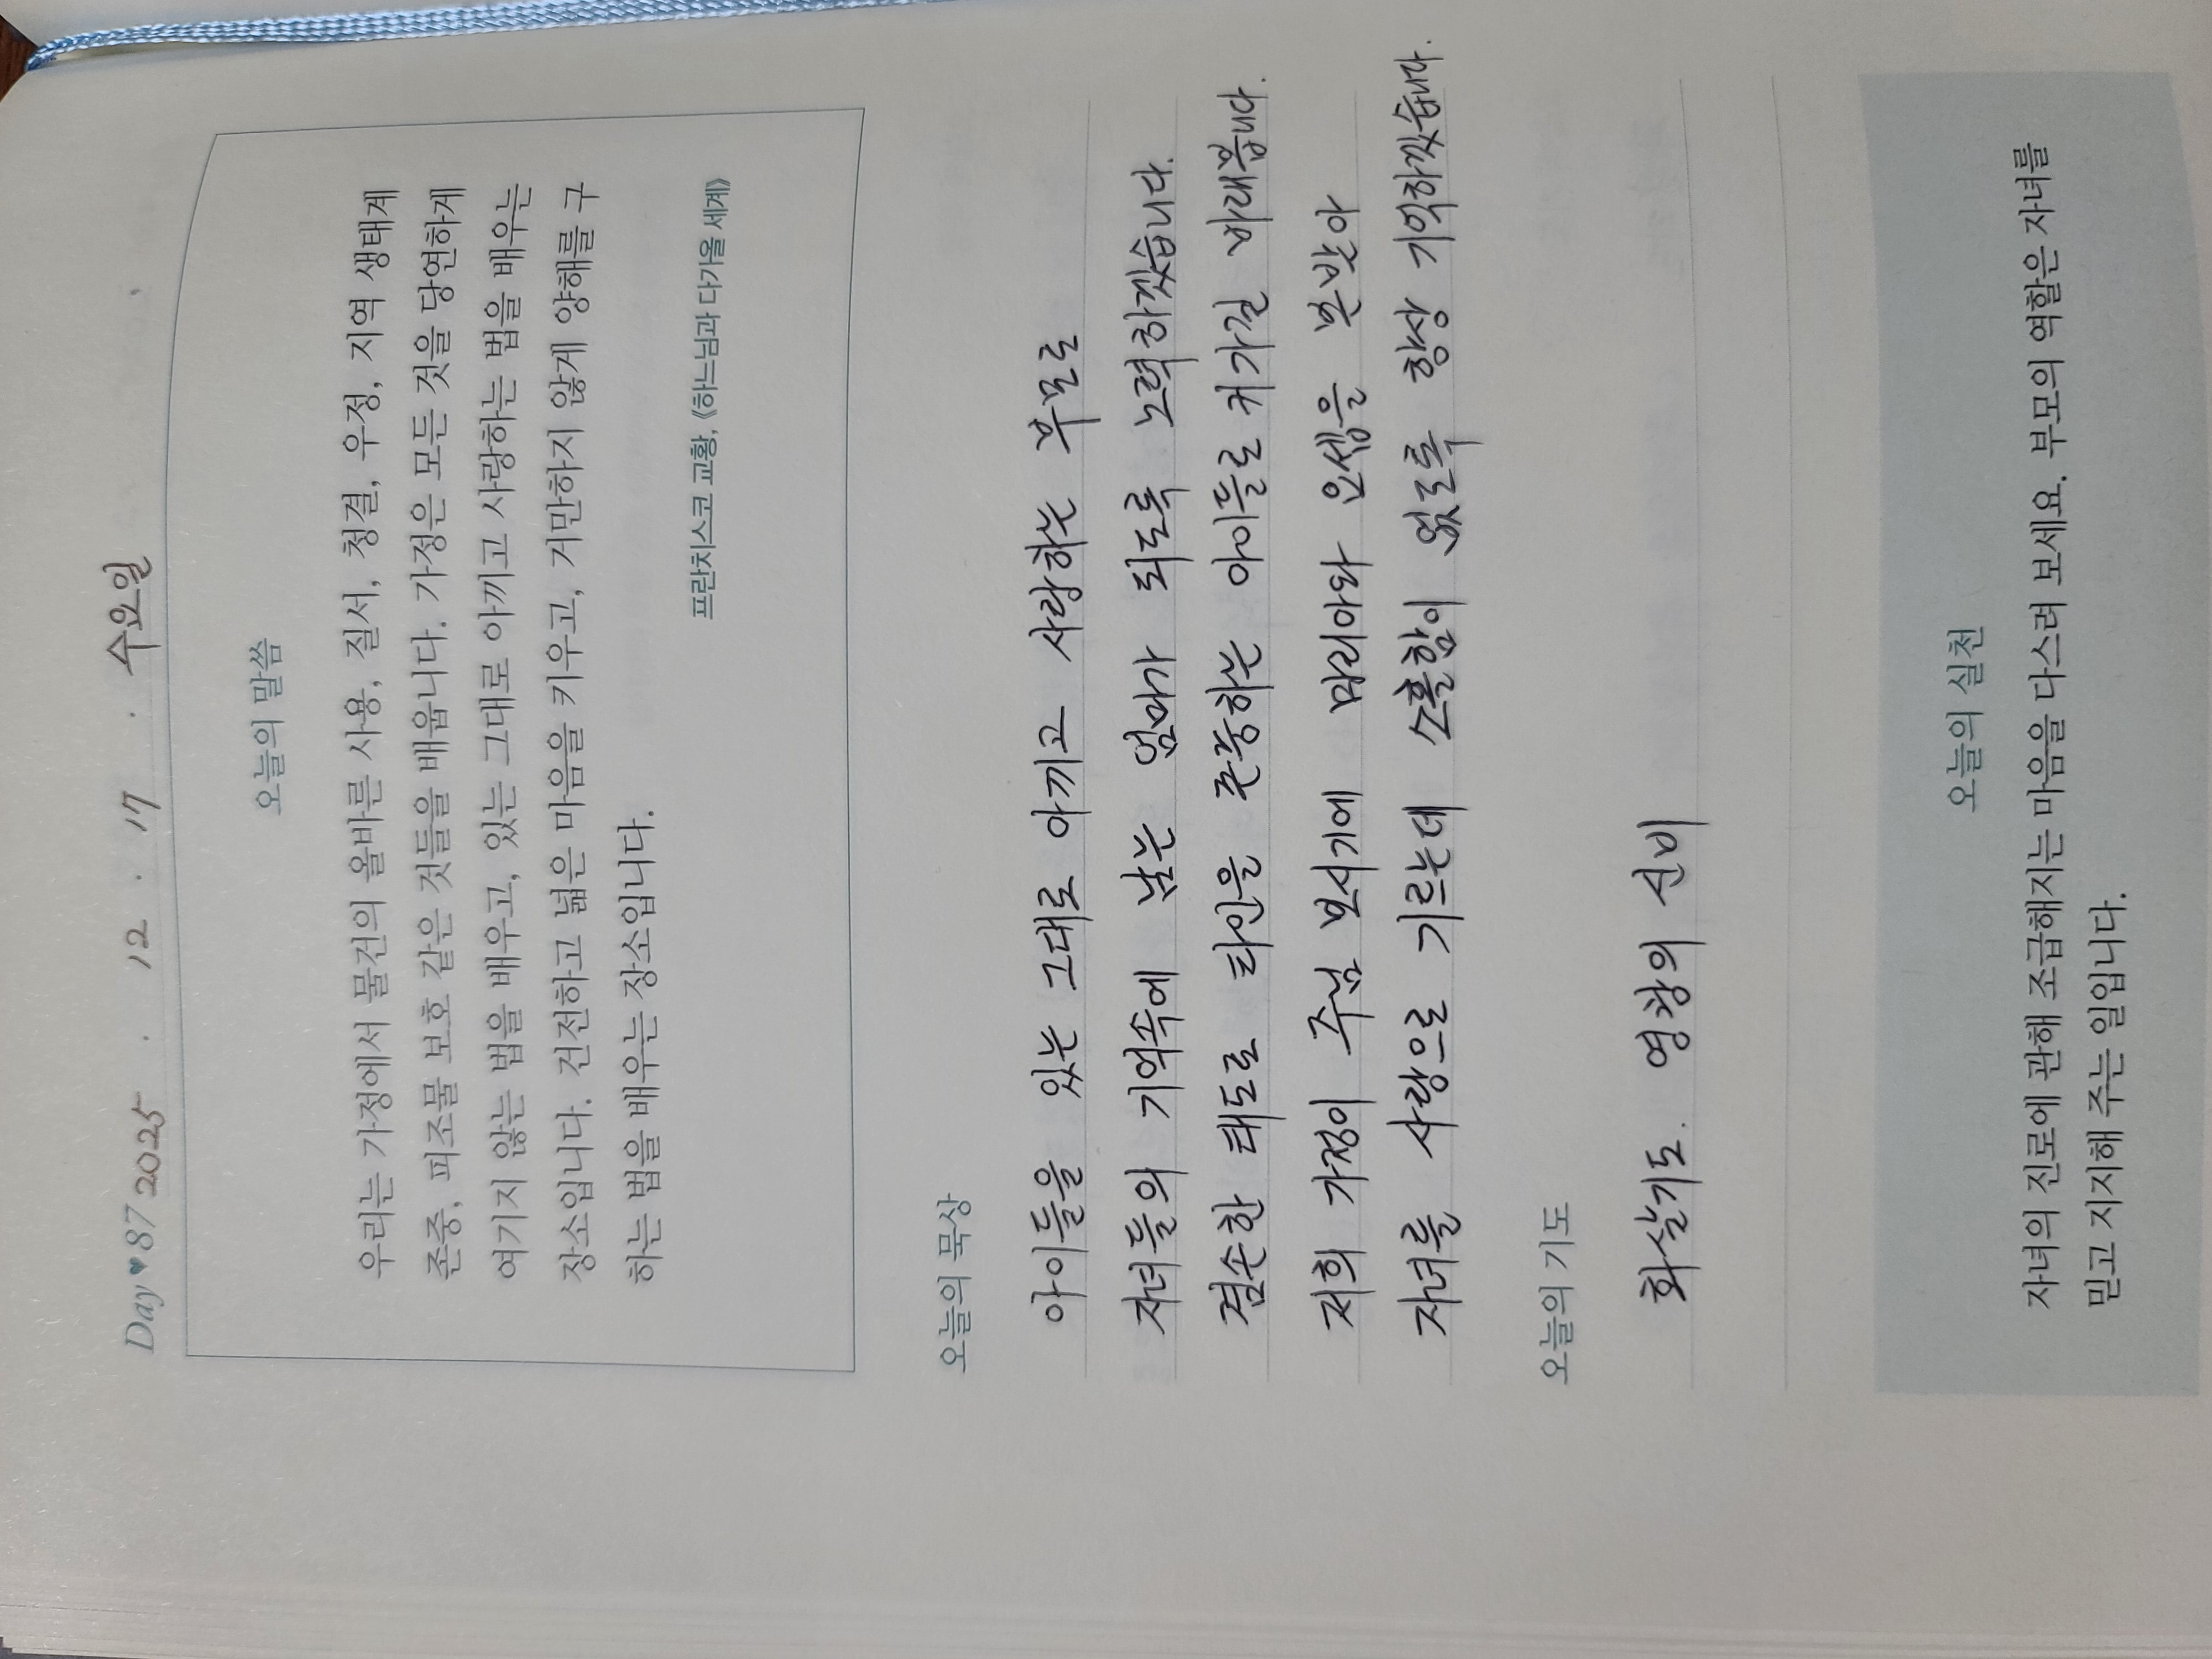 Day♥87 2025 . 12 . 17 . 수요일
오늘의 말씀
우리는 가정에서 물건의 올바른 사용, 질서, 청결, 우정, 지역 생태계
존중, 피조물 보호 같은 것들을 배웁니다. 가정은 모든 것을 당연하게
여기지 않는 법을 배우고, 있는 그대로 아끼고 사랑하는 법을 배우는
장소입니다. 건전하고 넓은 마음을 키우고, 거만하지 않게 양해를 구
하는 법을 배우는 장소입니다.
프란치스코 교황, 《하느님과 다가올 세계》
오늘의 묵상
아이들을 있는 그대로 아끼고 사랑하는 부모로
자녀들의 기억속에 남는 엄마가 되도록 노력하겠습니다.
겸손한 태도로 타인을 존중하는 아이들로 커가길 바래봅니다.
저희 가정이 주님 보시기에 마리아와 요셉을 본받아
자녀를 사랑으로 기르는데 소홀함이 없도록 항상 기억하겠습니다.
오늘의 기도
화살기도. 영광의 신비
오늘의 실천
자녀의 진로에 관해 조급해지는 마음을 다스려 보세요. 부모의 역할은 자녀를
믿고 지지해 주는 일입니다.